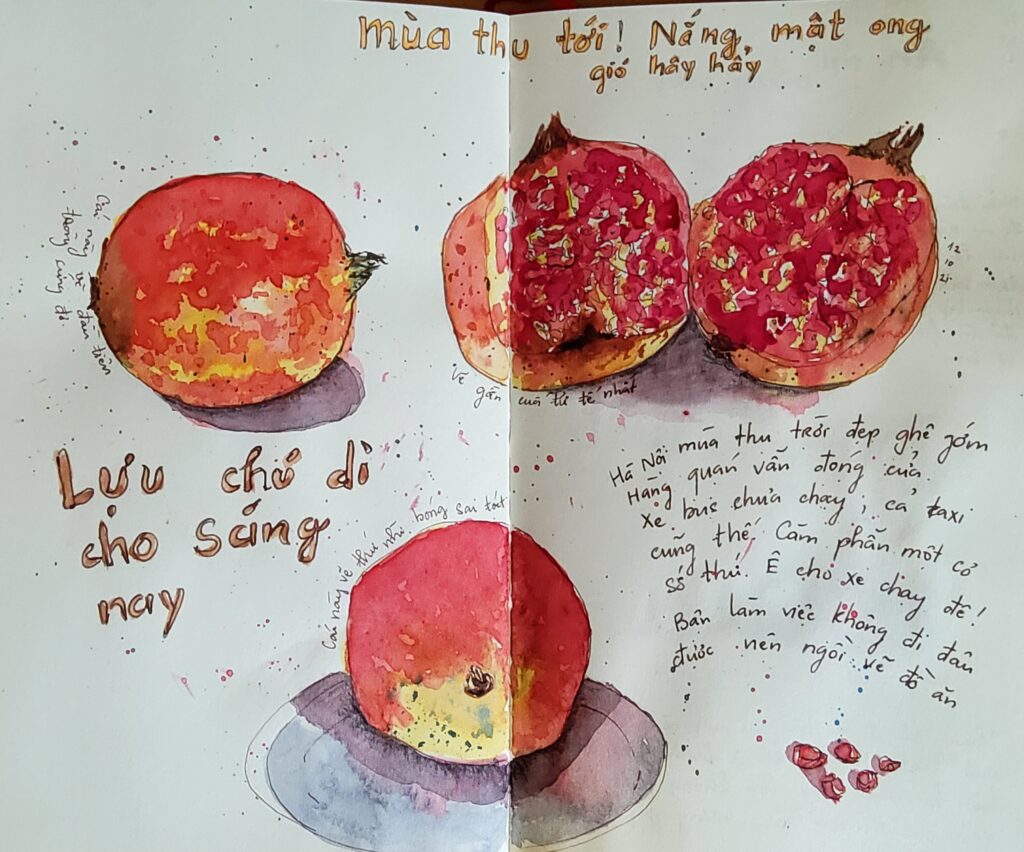 mùa thu tới! Nắng mật ong
gió hây hẩy
Cái này vẽ đầu tiên
trông cũng
12
10
21
vẽ gần cuối tử tế nhất
Lựu chứ dì
cho sáng
nay
Hà Nội mùa thu trời đẹp ghê gớm
Hàng quán vẫn đóng cửa.
Xe bus chưa chạy, cả taxi
cũng thế. Căm phẫn một cơ
số thứ. Ê cho xe chạy đê!
Bận làm việc không đi đâu
được nên ngồi vẽ đồ ăn
Cái này vẽ thứ nhì bóng sai toét